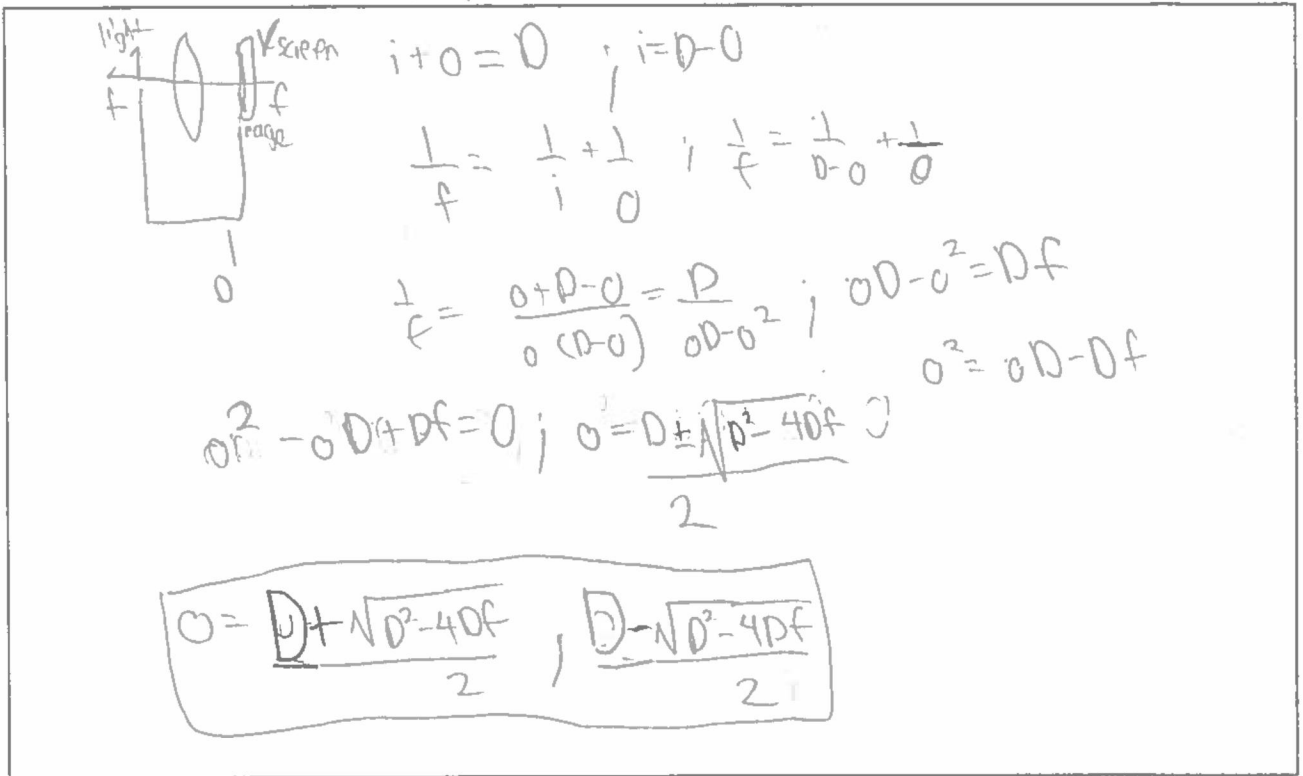 light
screen
f
f
image
D
i + o = D ; i = D - o
1/f = 1/i + 1/o ; 1/f = 1/(D-o) + 1/o
1/f = (o+D-o)/(o(D-o)) = D/(oD-o²) ; oD-o² = Df
o² = oD-Df
o² - oD + Df = 0 ; o = (D ± √(D²-4Df))/2
o = (D + √(D²-4Df))/2 , (D - √(D²-4Df))/2